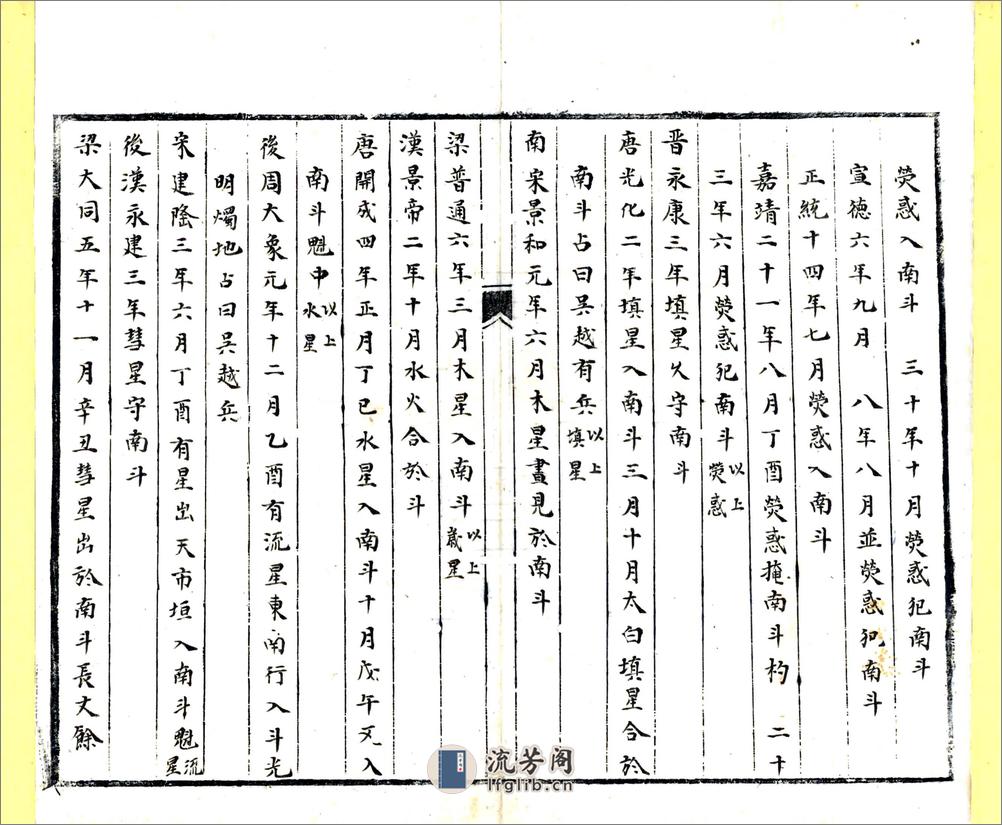 熒惑入南斗　三十年十月熒惑犯南斗
宣德六年九月　八年八月並熒惑犯南斗
正統十四年七月熒惑入南斗
嘉靖二十一年八月丁酉熒惑掩南斗杓　二十
三年六月熒惑犯南斗以上熒惑
晋永康三年填星久守南斗
唐光化二年填星入南斗三月十月太白填星合於
南斗占曰吳越有兵以上填星
南宋景和元年六月木星晝見於南斗
梁普通六年三月木星入南斗以上歲星
漢景帝二年十月水火合於斗
唐開成四年正月丁巳水星入南斗十月戊午又入
南斗魁中以上水星
後周大象元年十二月乙酉有流星東南行入斗光
明燭地占曰吳越兵
宋建隆三年六月丁酉有星出天市垣入南斗魁流星
後漢永建三年彗星守南斗
梁大同五年十一月辛丑彗星出於南斗長丈餘
流芳阁
lfglib.cn